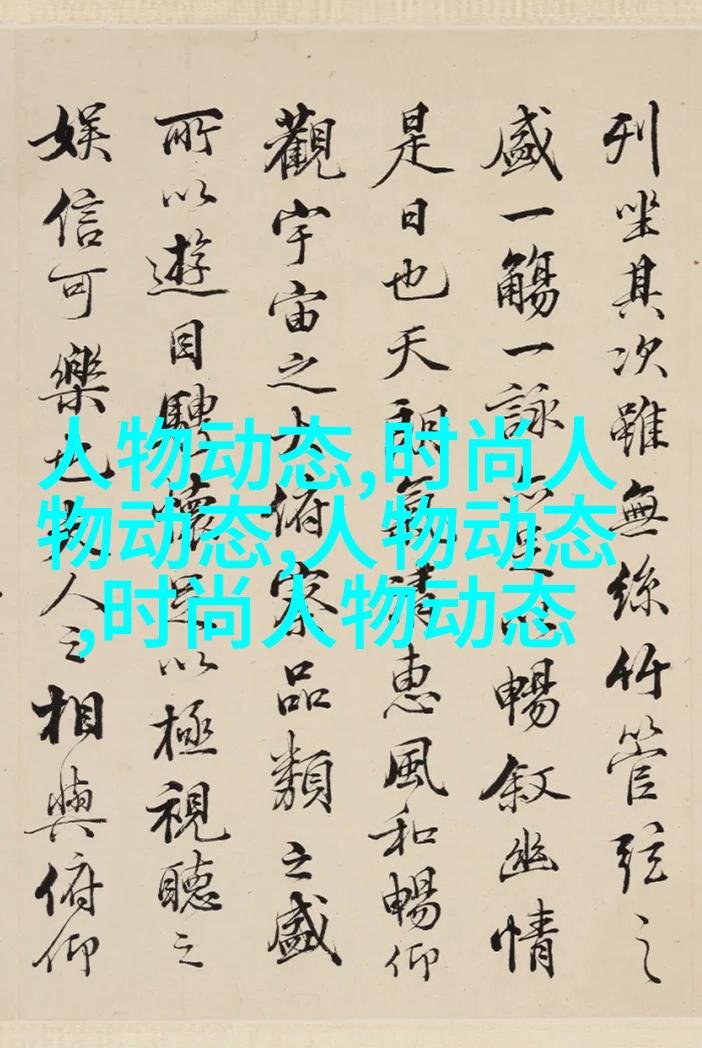 列坐其次雖無絲竹管弦之
盛一觴一詠暢敘幽情
是日也天朗氣清惠風和暢仰
觀宇宙之大俯察品類之盛
所以遊目騁懷足以極視聽之
娛信可樂也夫人之相與俯仰
人物动态,时尚人
物动态,人物动态
,时尚人物动态